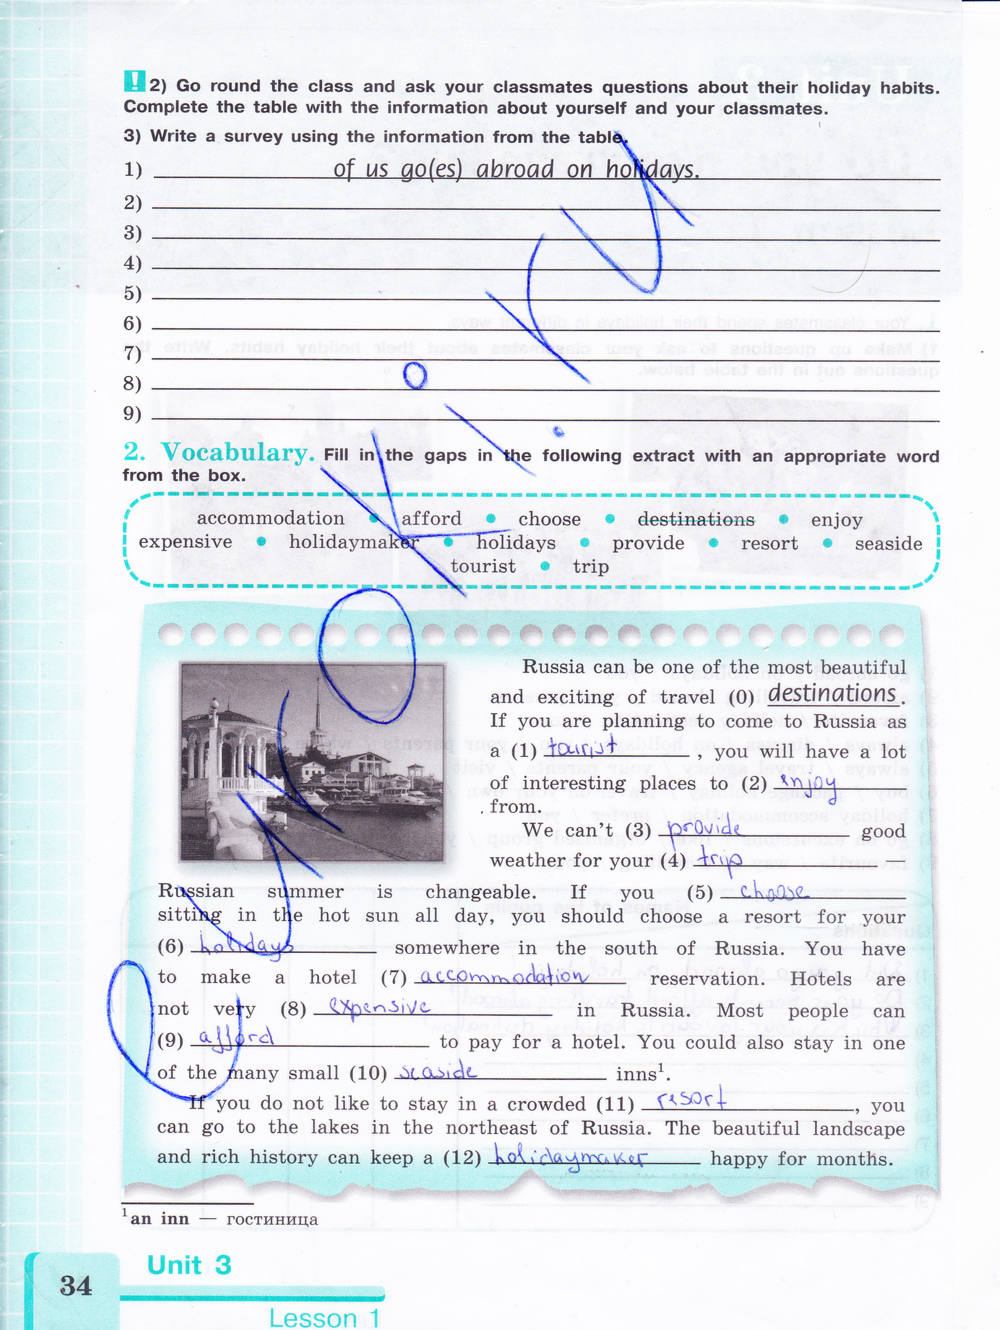 ! 2) Go round the class and ask your classmates questions about their holiday habits.
Complete the table with the information about yourself and your classmates.
3) Write a survey using the information from the table.
1) of us go(es) abroad on holidays.
2)
3)
4)
5)
6)
7)
8)
9)
2. Vocabulary. Fill in the gaps in the following extract with an appropriate word
from the box.
accommodation • afford • choose • destinations • enjoy
expensive • holidaymaker • holidays • provide • resort • seaside
tourist • trip
Russia can be one of the most beautiful
and exciting of travel (0) destinations.
If you are planning to come to Russia as
a (1) tourist, you will have a lot
of interesting places to (2) enjoy
from.
We can't (3) provide good
weather for your (4) trip —
Russian summer is changeable. If you (5) choose
sitting in the hot sun all day, you should choose a resort for your
(6) holidays somewhere in the south of Russia. You have
to make a hotel (7) accommodation reservation. Hotels are
not very (8) expensive in Russia. Most people can
(9) afford to pay for a hotel. You could also stay in one
of the many small (10) seaside inns¹.
If you do not like to stay in a crowded (11) resort, you
can go to the lakes in the northeast of Russia. The beautiful landscape
and rich history can keep a (12) holidaymaker happy for months.
¹an inn — гостиница
Unit 3
34
Lesson 1